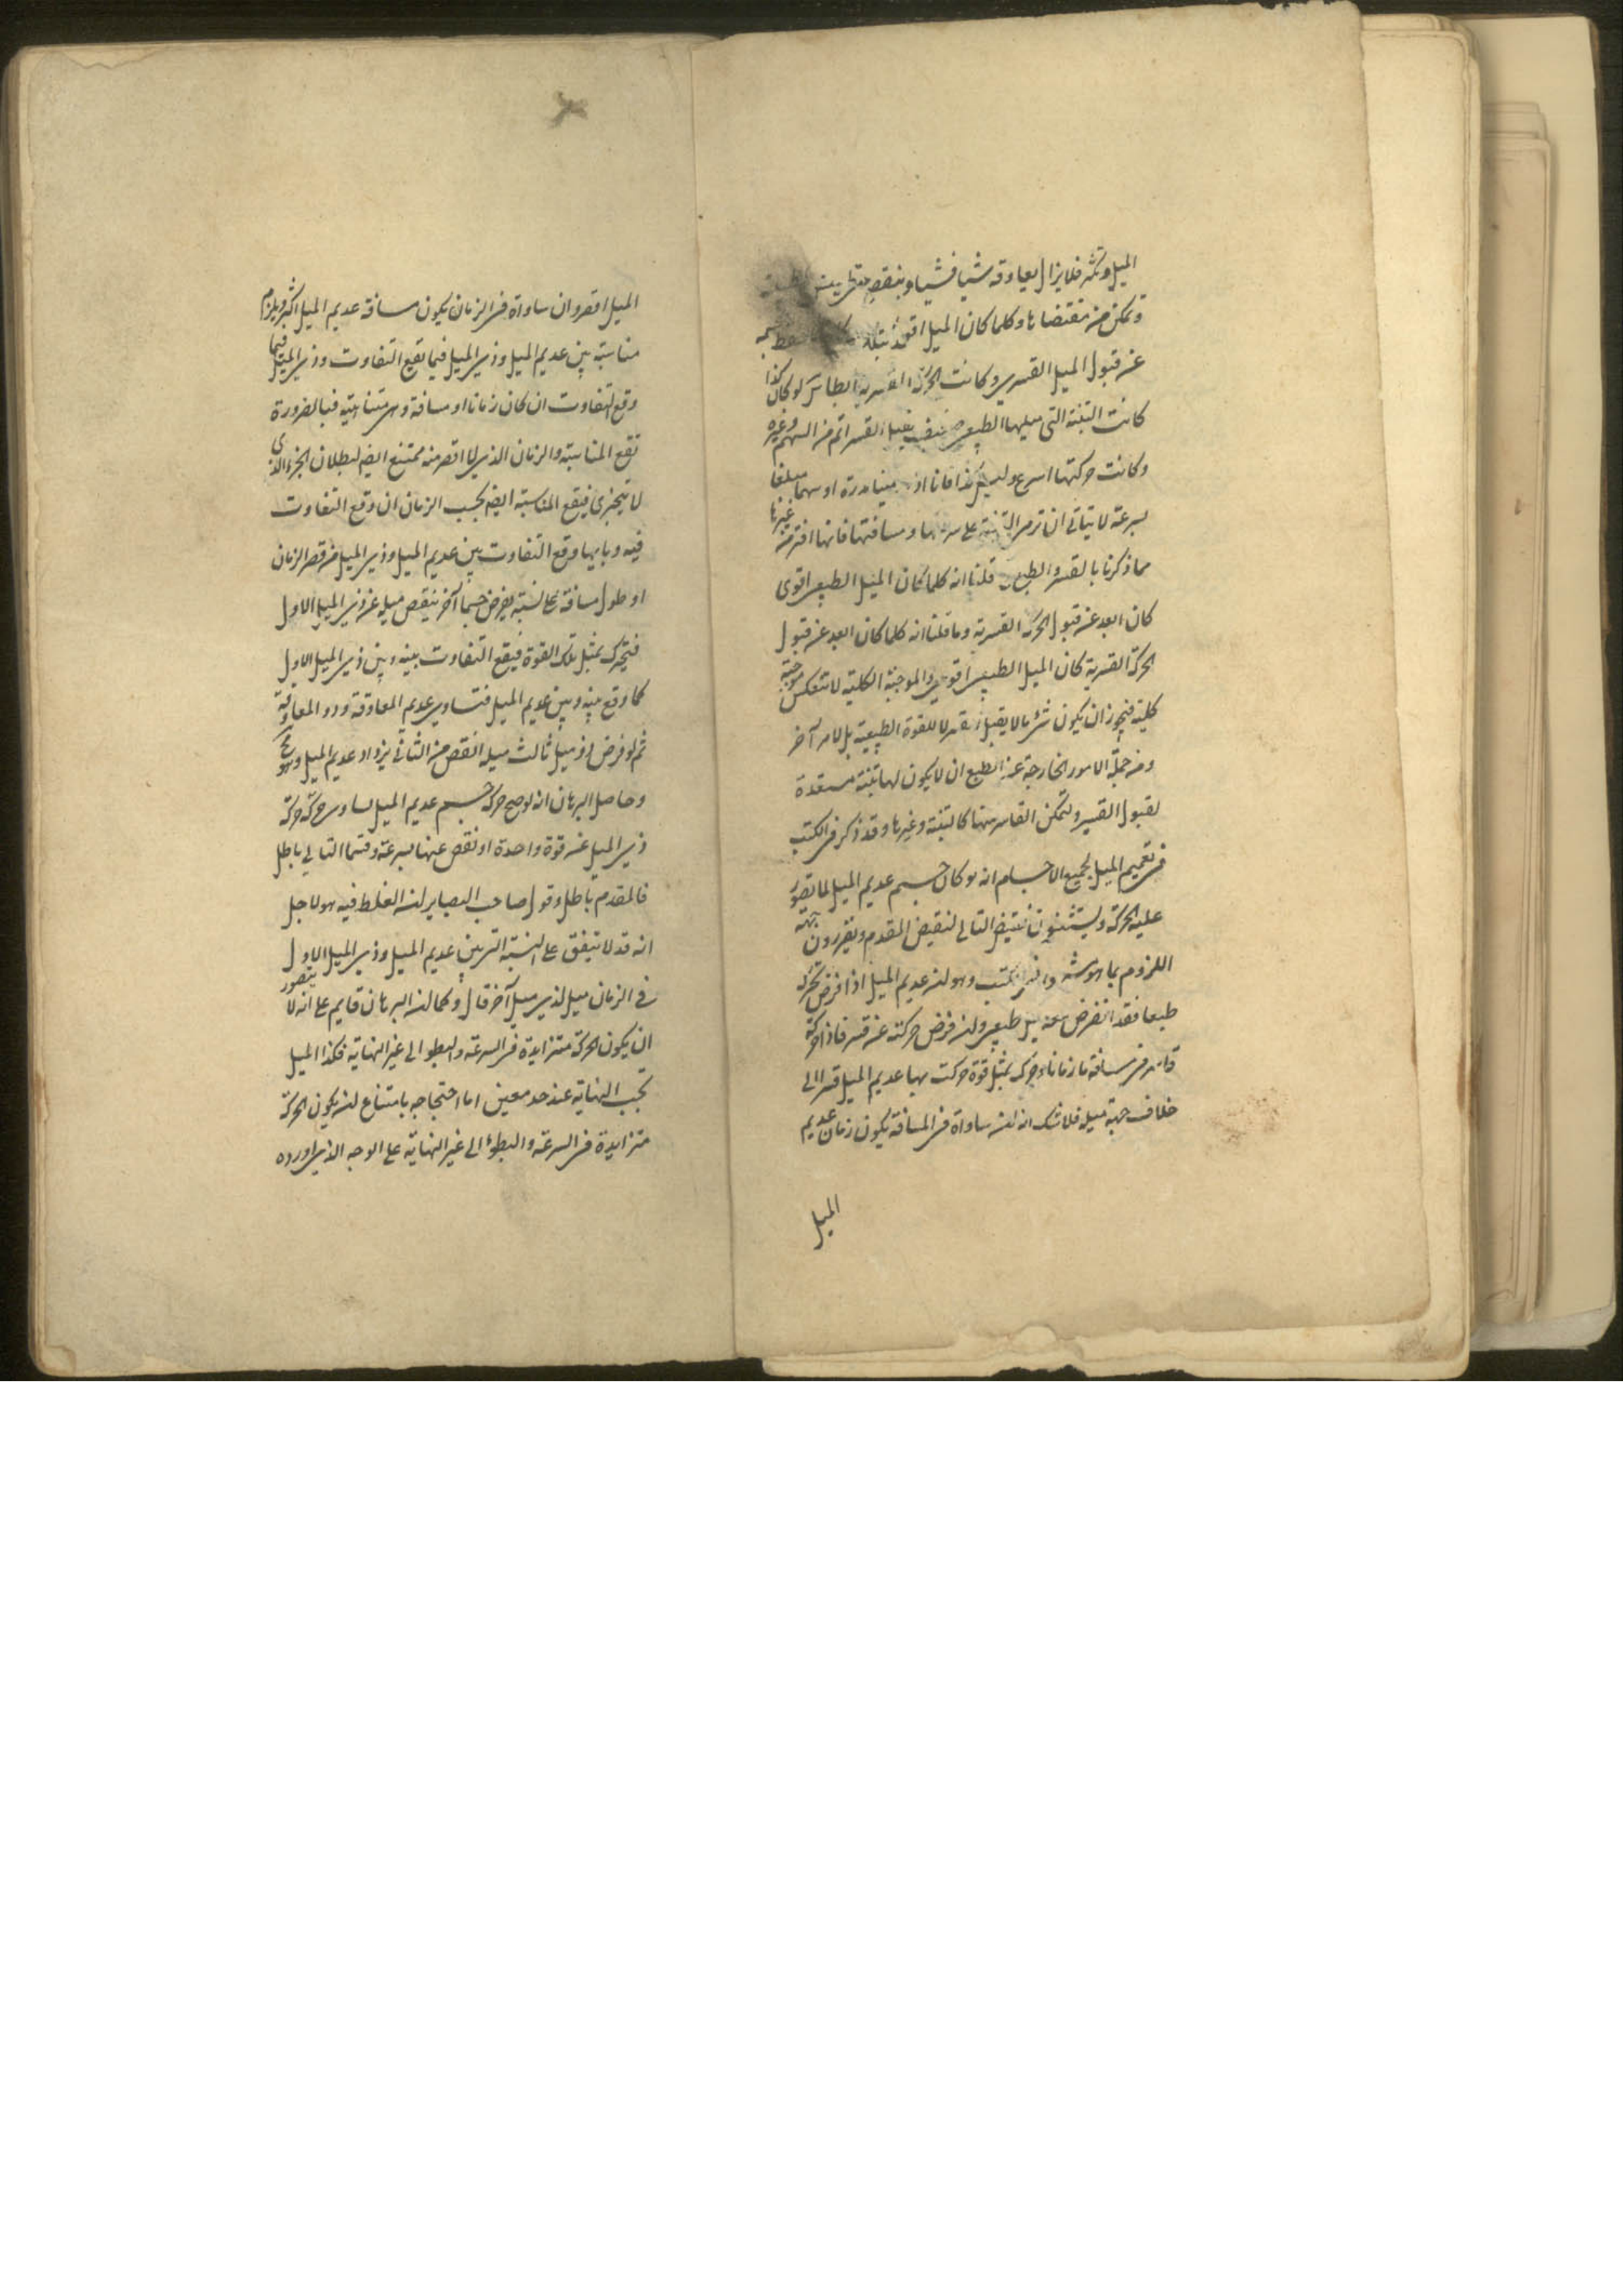 الميل وتكثر فلا يزال يعاوقه شيا فشيا وينقص حتى
وتمكن من مقتضاها وكلما كان الميل اقوى
عن قبول الميل القسري وكانت الحركة القسرية ابطا لو كان كذا
كانت التبنة التي ميلها الطبيعي ضعيف يقبل القسر اتم من السهم وغيره
وكانت حركتها اسرع وليس كذا فانا اذا رمينا مدرة او سهما مبلغا
بسرعة لا يتاتى ان ترمى التبنة على سرعتها ومسافتها فانها افتر من غيرها
مما ذكرنا بالقسر والطبع قلنا انه كلما كان الميل الطبيعي اقوى
كان ابعد عن قبول الحركة القسرية وما قلنا انه كلما كان ابعد عن قبول
الحركة القسرية كان الميل الطبيعي اقوى والموجبة الكلية لا تنعكس موجبة
كلية فيجوز ان يكون شئ ما لا يقبل القسر لا للقوة الطبيعية بل لامر آخر
ومن جملة الامور الخارجة عن الطبع ان لا يكون لها بنية مستعدة
لقبول القسر ولتمكن القاسر منها كالتبنة وغيرها وقد ذكر في الكتب
في تعميم الميل لجميع الاجسام انه لو كان جسم عديم الميل لما تصور
عليه الحركة ويستثنون نقيض التالي لنقيض المقدم ويقررون
اللزوم بما هو مشهور في الكتب وهو ان عديم الميل اذا فرض تحركه
طبعا فقد انفرض معه ميل طبيعي وان فرض حركته عن قسر فاذا حركه
قاسر في مسافة ما زمانا وحرك بمثل قوة حركت بها عديم الميل قسرا الى
خلاف جهة ميله فلا شك انه ان ساواه في المسافة يكون زمان عديم
الميل
الميل اقصر وان ساواه في الزمان يكون مسافة عديم الميل اكثر ويلزم
مناسبة بين عديم الميل وذي الميل فيما يقع التفاوت وذي الميل فيما
وقع التفاوت ان كان زمانا او مسافة وهي متناهية فبالضرورة
تقع المناسبة والزمان الذي لا اقصر منه ممتنع ايضا لبطلان الجزء الذي
لا يتجزى فيقع المناسبة ايضا بحسب الزمان ان وقع التفاوت
فيه وبايها وقع التفاوت بين عديم الميل وذي الميل من قصر الزمان
او طول مسافة على نسبته يفرض جسما آخر ينقص ميله عن ذي الميل الاول
فتحرك بمثل تلك القوة فيقع التفاوت بينه وبين ذي الميل الاول
كما وقع بينه وبين عديم الميل فتساوى عديم المعاوقة وذو المعاوقة
ثم لو فرض ذو ميل ثالث ميله انقص من الثاني يزداد عديم الميل وهو مح
وحاصل البرهان انه لو صح حركة جسم عديم الميل لساوى حركة حركة
ذي الميل عن قوة واحدة او نقص عنها بسرعة وقتما التالي باطل
فالمقدم باطل وقول صاحب البصاير ان الغلط فيه هو لاجل
انه قد لا يتفق على النسبة التي بين عديم الميل وذي الميل الاول
في الزمان ميل لذي ميل آخر قال وكما ان البرهان قايم على انه لا يتصور
ان يكون الحركة متزايدة في السرعة والبطو الى غير النهاية فكذا الميل
تجب النهاية عند حد معين اما احتجاجه بامتناع ان يكون الحركة
متزايدة في السرعة والبطؤ الى غير النهاية على الوجه الذي اورده